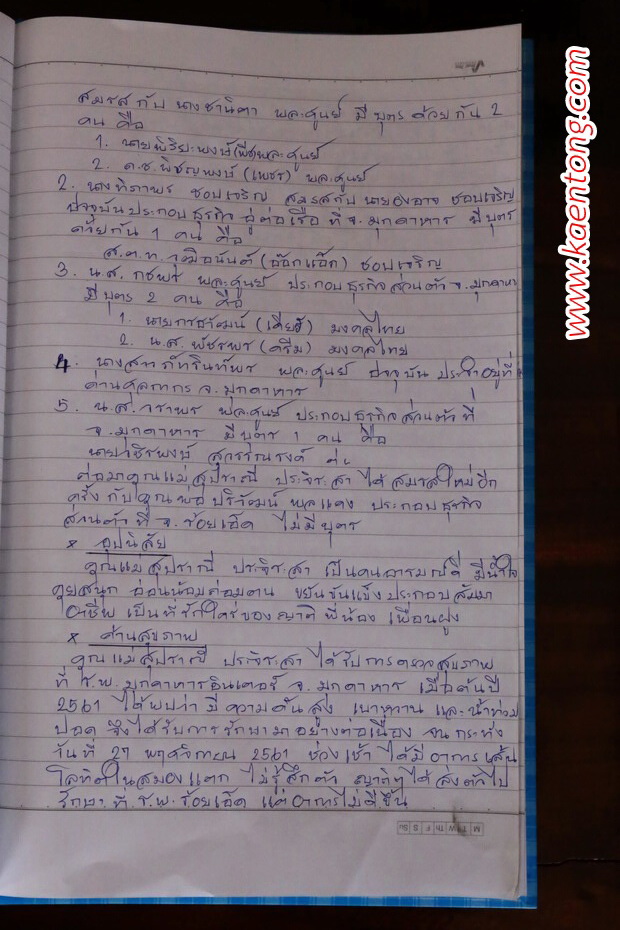 สมรส กับ นางชานิดา พละศูนย์ มี บุตร ด้วย กัน 2
คน คือ
1. นายพิริยะพงษ์ (พีช) พละศูนย์
2. ด.ช. พิชญพงษ์ (เพชร) พละศูนย์
2. นางทิภาพร ชอบเจริญ สมรสกับ นายองอาจ ชอบเจริญ
ปัจจุบันประกอบธุรกิจ อู่ต่อเรือ ที่ จ.มุกดาหาร มีบุตร
ด้วยกัน 1 คน คือ
ส.ต.ท. วุฒินันต์ (อ๊อกแอ๊ก) ชอบเจริญ
3. น.ส. กชพร พละศูนย์ ประกอบธุรกิจส่วนตัว จ.มุกดาหา
มีบุตร 2 คน คือ
1. นาย (เคียว) มงคลไทย
2. น.ส. พัชรพร (ครีม) มงคลไทย
4. นางสาว ภัทรินท์พร พละศูนย์ ปัจจุบัน ประจำอยู่ที่
ด่านศุลกากร จ.มุกดาหาร
5. น.ส. วราพร พละศูนย์ ประกอบธุรกิจส่วนตัว ที่
จ.มุกดาหาร มีบุตร 1 คน คือ
นายวชิรพงษ์ สุวรรณรงค์
ต่อมาคุณแม่สุปราณี ประจิระสา ได้สมรสใหม่อีก
ครั้ง กับ คุณพ่อ ปริวัฒน์ พลแดง ประกอบธุรกิจ
ส่วนตัว ที่ จ.ร้อยเอ็ด ไม่มีบุตร
× อุปนิสัย
คุณแม่สุปราณี ประจิระสา เป็นคนอารมณ์ดี มีน้ำใจ
คุยสนุก อ่อนน้อมถ่อมตน ขยันขันแข็งประกอบสัมมา
อาชีพ เป็นที่รักใคร่ของญาติ พี่น้อง เพื่อนฝูง
× ด้านสุขภาพ
คุณแม่สุปราณี ประจิระสา ได้รับการตรวจสุขภาพ
ที่ ร.พ. มุกดาหารอินเตอร์ จ.มุกดาหาร เมื่อต้นปี
2561 ได้พบว่า มี ความดันสูง เบาหวาน และน้ำท่วม
ปอด จึงได้รับการรักษามาอย่างต่อเนื่อง จนกระทั่ง
วันที่ 27 พฤศจิกายน 2561 ช่วงเช้า ได้มีอาการเส้น
โลหิตในสมองแตก ไม่รู้สึกตัว ญาติๆได้ส่งตัวไป
รักษา ที่ ร.พ. ร้อยเอ็ด แต่อาการไม่ดีขึ้น
M T W Th F S Su
www.kaentong.com